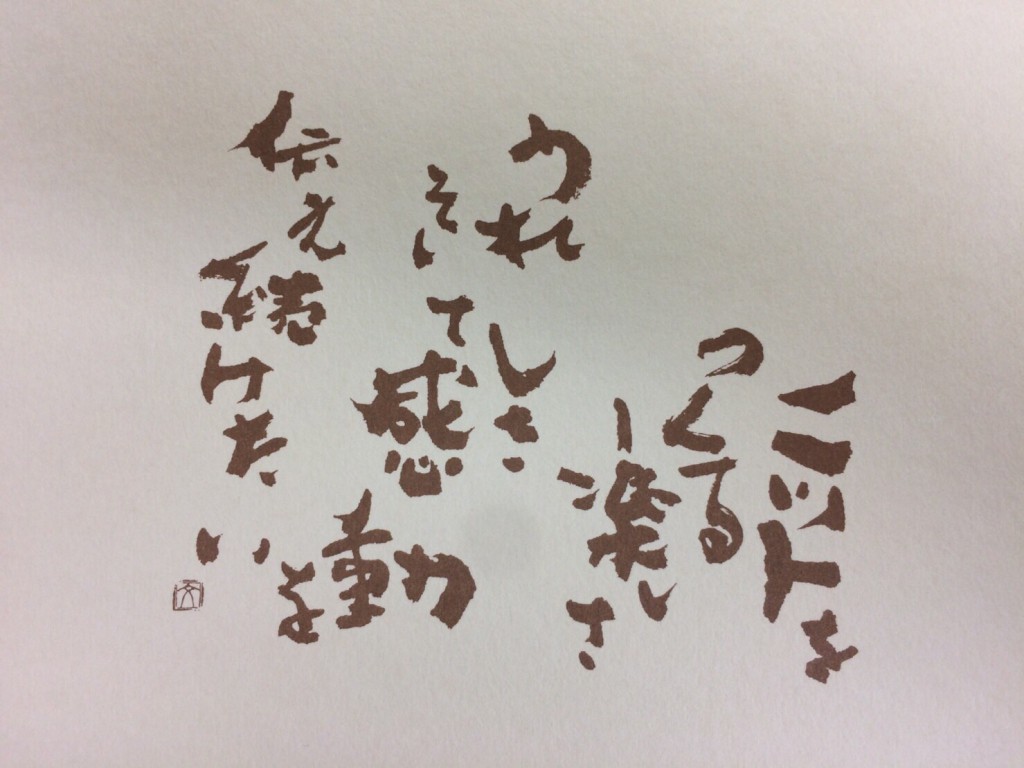 ニットを
つくる
楽しさ
うれしさ
そして感動を
伝え続けたい